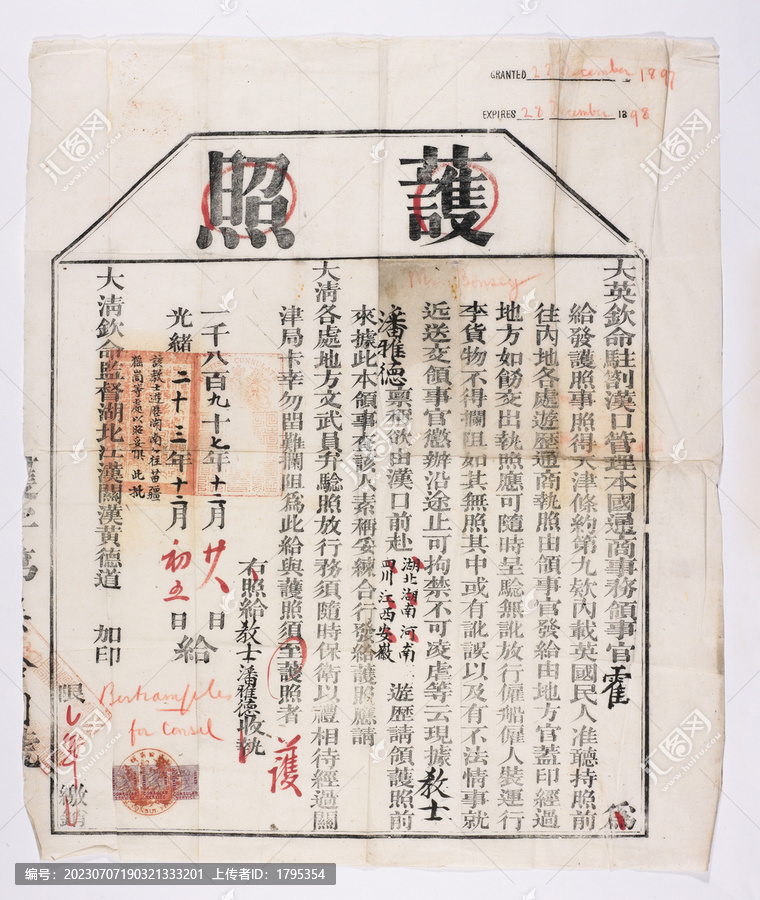 GRANTED 28 December 1897
EXPIRES 28 December 1898
護照
Mr Bonsey
大英欽命駐劄漢口管理本國通商事務領事官霍 爲
給發護照事照得天津條約第九欵內載英國民人准聽持照前
往內地各處遊歷通商執照由領事官發給由地方官蓋印經過
地方如飭交出執照應可隨時呈驗無訛放行僱船僱人裝運行
李貨物不得攔阻如其無照其中或有訛誤以及有不法情事就
近送交領事官懲辦沿途止可拘禁不可凌虐等云現據教士
潘雅德稟稱欲由漢口前赴湖北湖南河南四川江西安徽遊歷請領護照前
來據此本領事查該人素稱妥練合行發給護照應請
大清各處地方文武員弁驗照放行務須隨時保衛以禮相待經過關
津局卡幸勿留難攔阻爲此給與護照須至護照者
護
右照給教士潘雅德收執
一千八百九十七年十二月廿八日
光緒二十三年十二月初五日給
該教士遊歷湖南
此批
大清欽命監督湖北江漢關漢黃德道 加印
for Consul
限一年繳銷
编号：20230707190321333201 上传者ID：1795354
汇图网
www.huitu.com